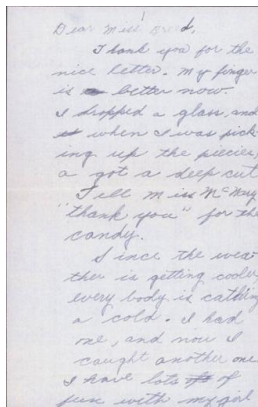 Dear Miss Breed,
Thank you for the
nice letter. My finger
is better now.
I dropped a glass, and
when I was pick-
ing up the piecies,
a got a deep cut.
"Tell Miss McNary
"thank you" for the
candy.
Since the wea-
ther is getting cooler
every body is catching
a cold. I had
one, and now I
caught another one
I have lots of
fun with my girl